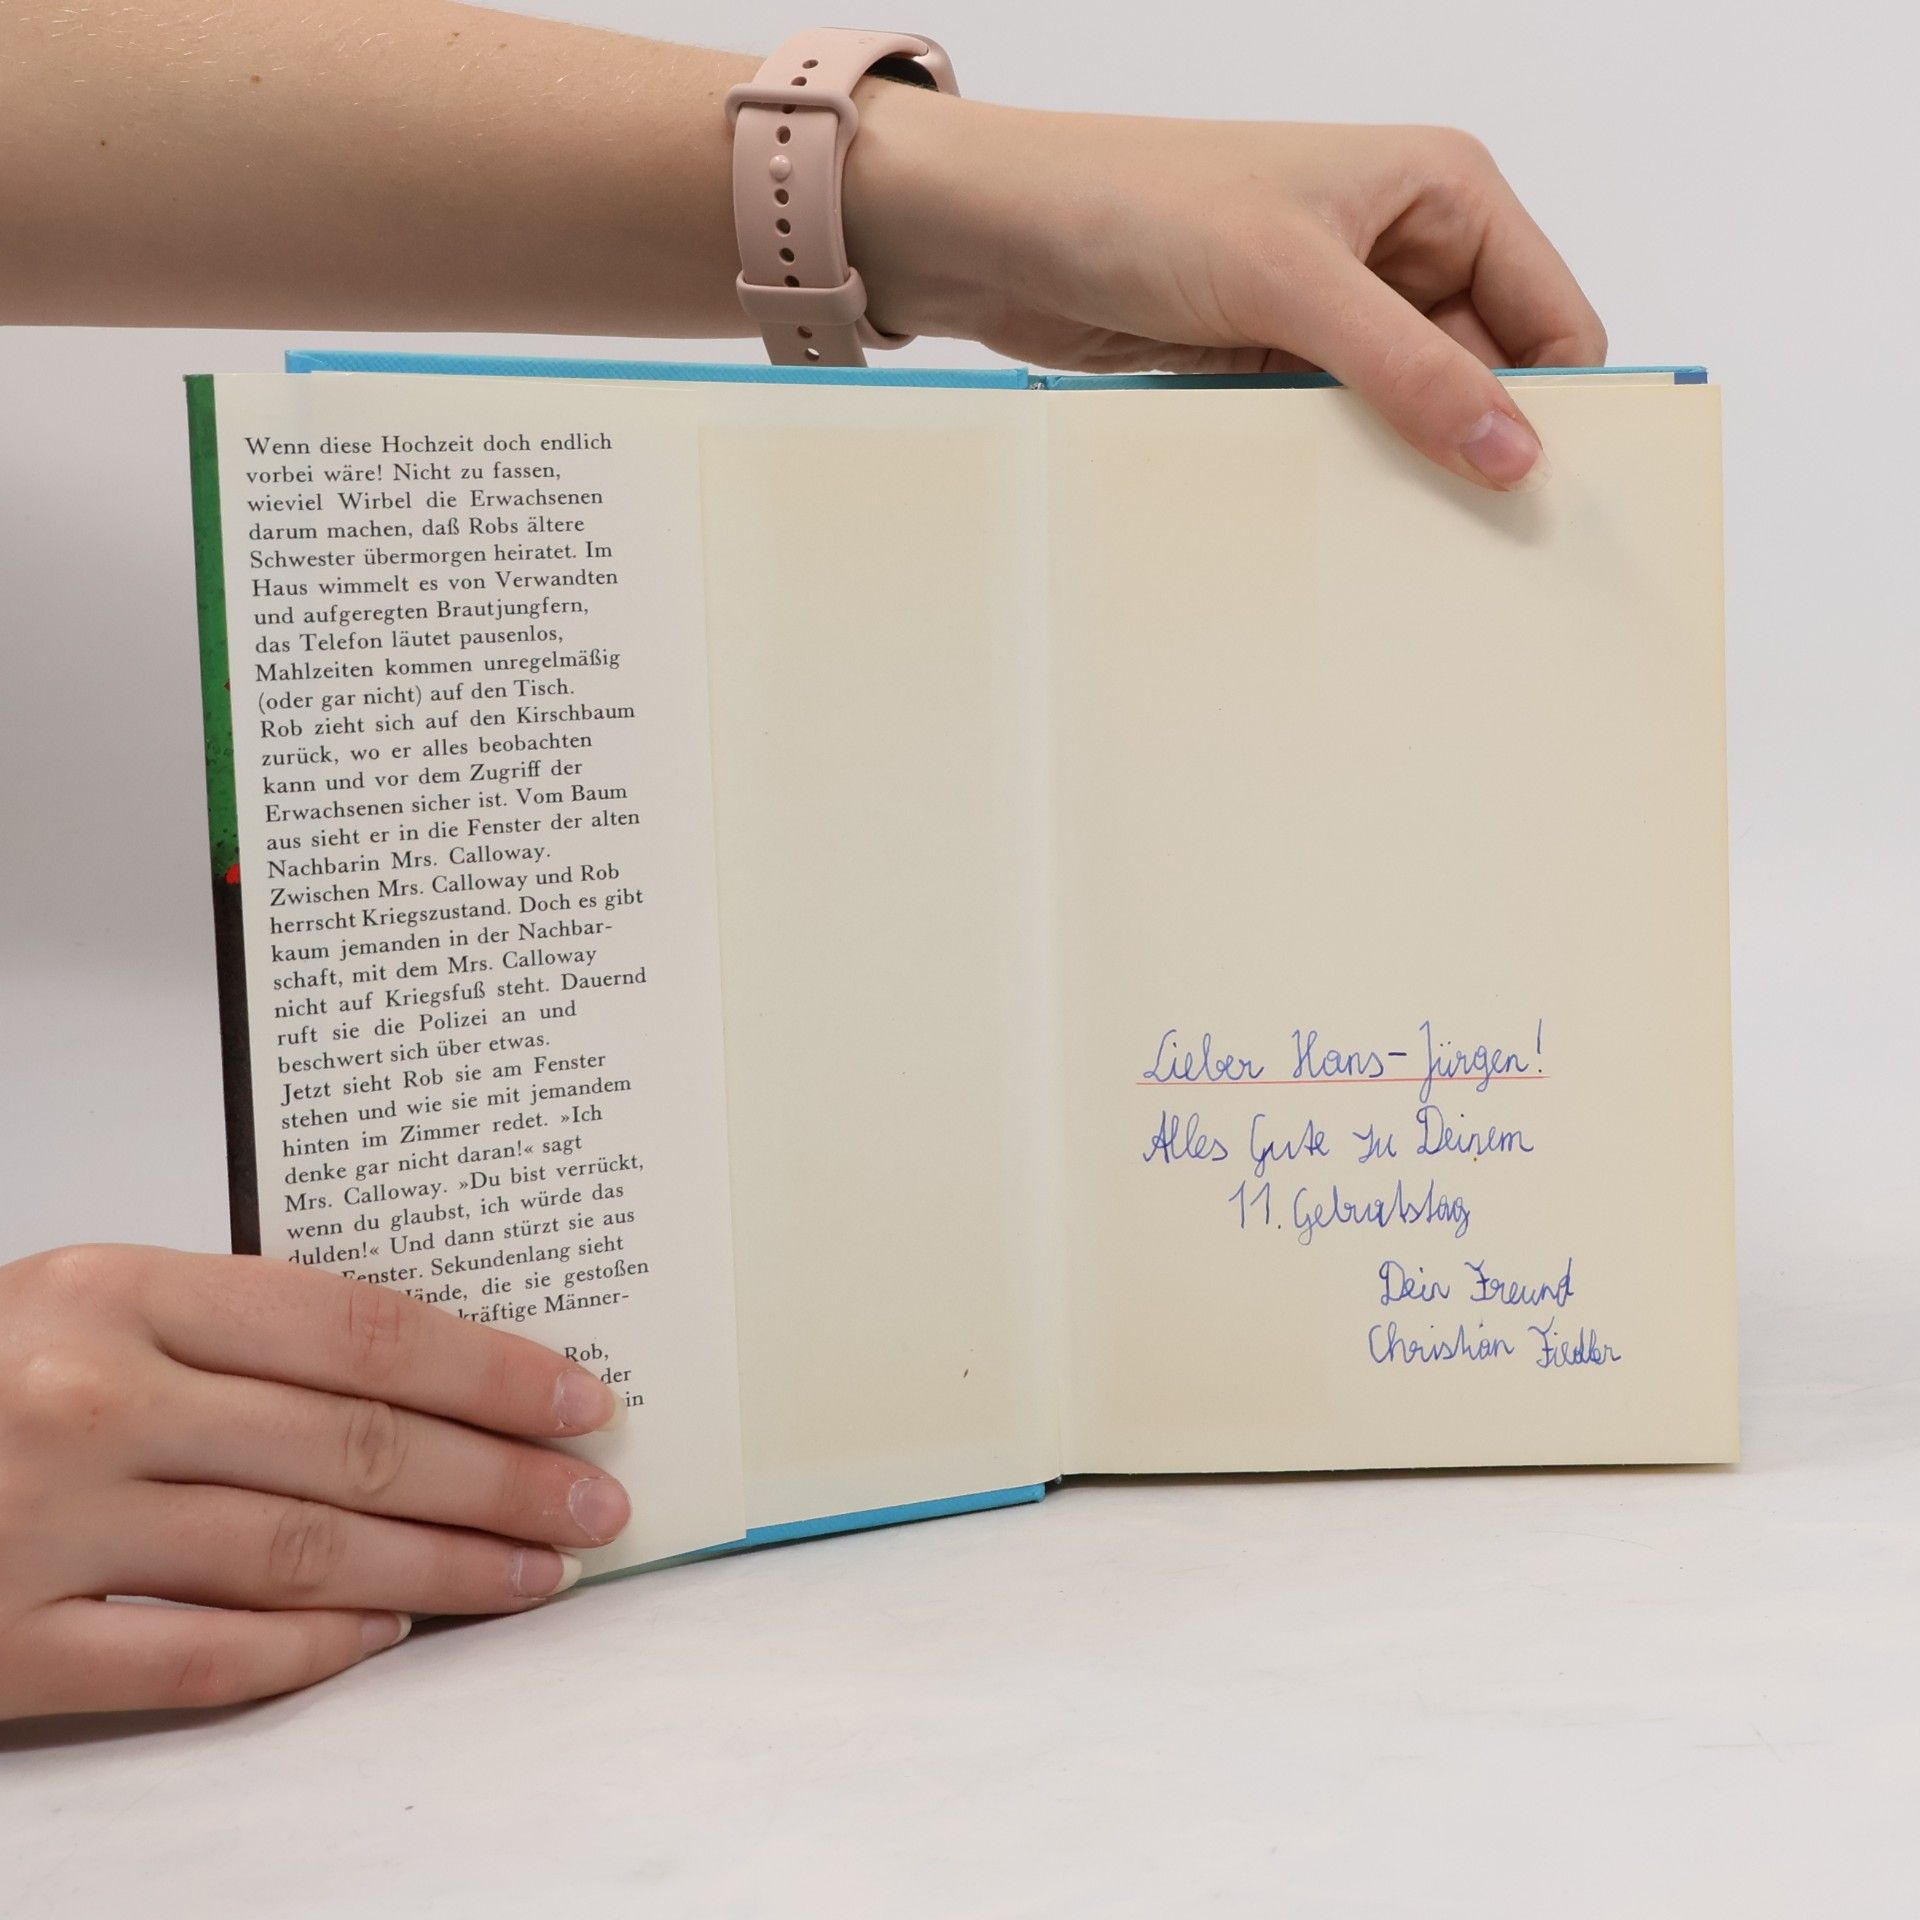 Wenn diese Hochzeit doch endlich
vorbei wäre! Nicht zu fassen,
wieviel Wirbel die Erwachsenen
darum machen, daß Robs ältere
Schwester übermorgen heiratet. Im
Haus wimmelt es von Verwandten
und aufgeregten Brautjungfern,
das Telefon läutet pausenlos,
Mahlzeiten kommen unregelmäßig
(oder gar nicht) auf den Tisch.
Rob zieht sich auf den Kirschbaum
zurück, wo er alles beobachten
kann und vor dem Zugriff der
Erwachsenen sicher ist. Vom Baum
aus sieht er in die Fenster der alten
Nachbarin Mrs. Calloway.
Zwischen Mrs. Calloway und Rob
herrscht Kriegszustand. Doch es gibt
kaum jemanden in der Nachbar-
schaft, mit dem Mrs. Calloway
nicht auf Kriegsfuß steht. Dauernd
ruft sie die Polizei an und
beschwert sich über etwas.
Jetzt sieht Rob sie am Fenster
stehen und wie sie mit jemandem
hinten im Zimmer redet. »Ich
denke gar nicht daran!« sagt
Mrs. Calloway. »Du bist verrückt,
wenn du glaubst, ich würde das
dulden!« Und dann stürzt sie aus
Fenster. Sekundenlang sieht
Hände, die sie gestoßen
kräftige Männer-
Rob,
der
in
Lieber Hans-Jürgen!
Alles Gute zu Deinem
11. Geburtstag
Dein Freund
Christian Fiedler